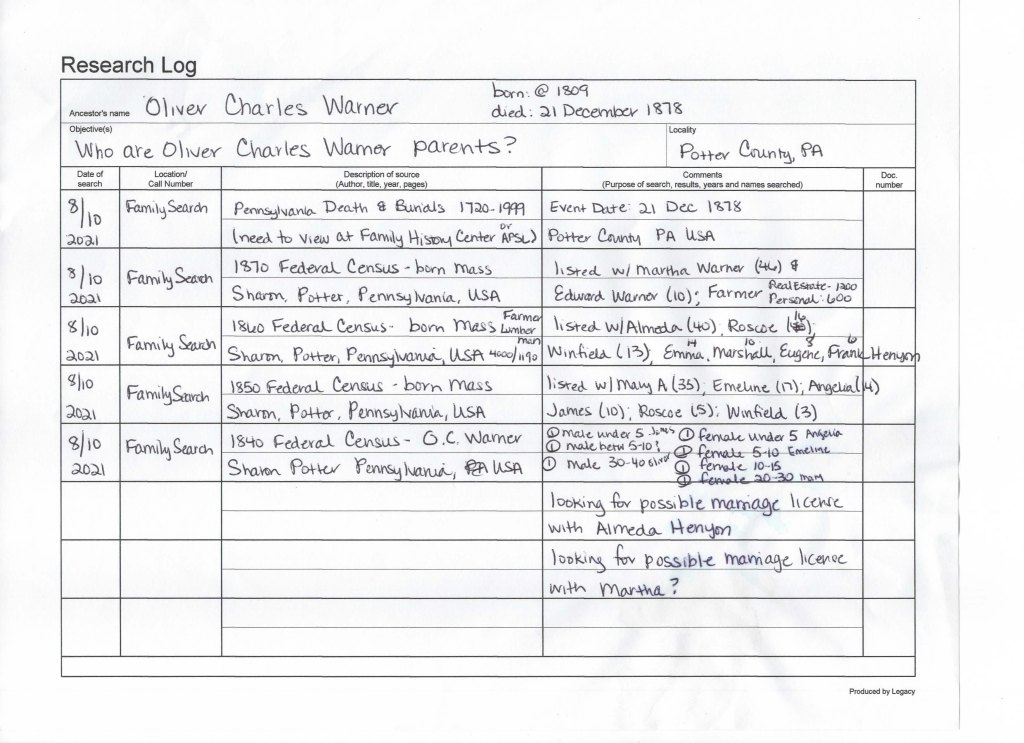 Research Log
Ancestor's name Oliver Charles Warner
born: @ 1809
died: 21 December 1878
Objective(s)
Who are Oliver Charles Warner parents?
Locality
Potter County, PA
Date of search
Location/ Call Number
Description of source (Author, title, year, pages)
Comments (Purpose of search, results, years and names searched)
Doc. number
8/10 2021
FamilySearch
Pennsylvania Death & Burials 1720-1999
(need to view at Family History Center or APSL)
Event Date: 21 Dec 1878
Potter County PA USA
8/10 2021
FamilySearch
1870 Federal Census - born Mass
Sharon, Potter, Pennsylvania, USA
listed w/ Martha Warner (46) &
Edward Warner (10); Farmer Real Estate - 1200 Personal: 600
8/10 2021
Family Search
1860 Federal Census - born Mass Farmer Lumber man
Sharon, Potter, Pennsylvania, USA 4000/1190
listed w/Almeda (40), Roscoe 16
Winfield (13), Emma 14, Marshall 10, Eugene 8, Frank 6 Henyon
8/10 2021
FamilySearch
1850 Federal Census - born Mass
Sharon, Potter, Pennsylvania, USA
listed w/ Mary A (35), Emeline (17); Angelia (14)
James (10); Roscoe (5); Winfield (3)
8/10 2021
FamilySearch
1840 Federal Census - O.C. Warner
Sharon Potter Pennsylvania, USA
① male under 5 James
① male betw 5-10?
① male 30-40 Oliver
① female under 5 Angelia
① female 5-10 Emeline
① female 10-15
① female 20-30 Mary
looking for possible marriage license
with Almeda Henyon
looking for possible marriage license
with Martha?
Produced by Legacy